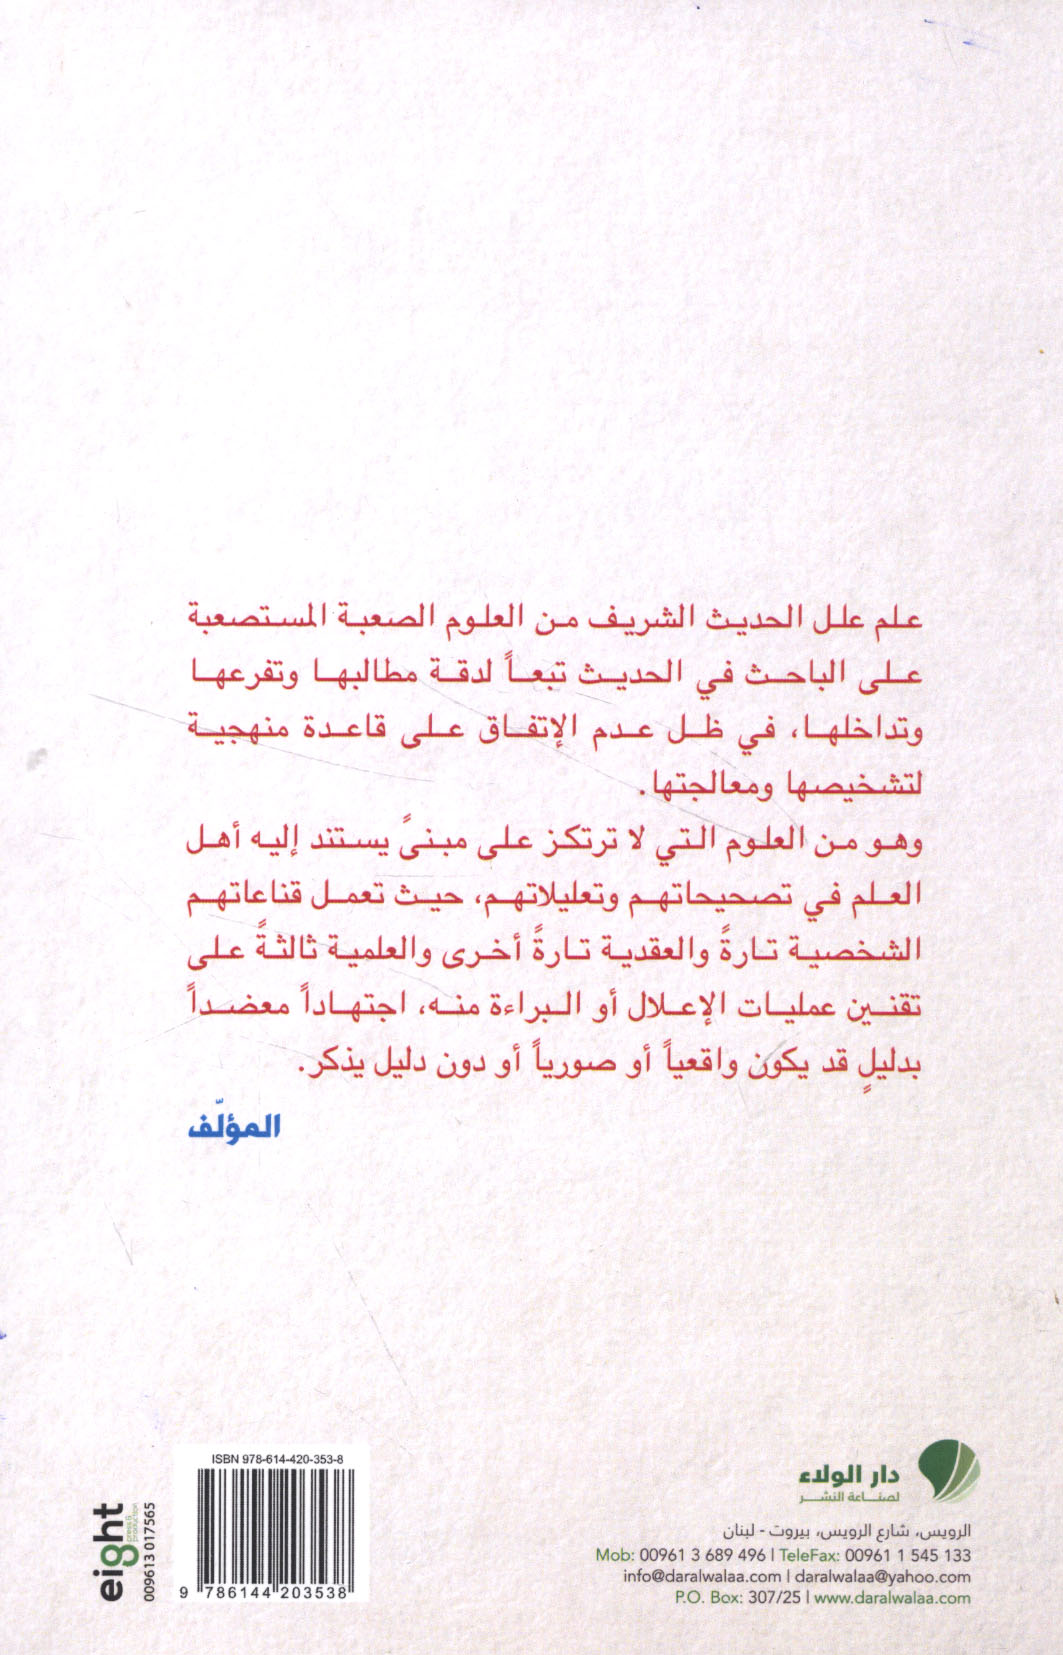 علم علل الحديث الشريف من العلوم الصعبة المستصعبة
على الباحث في الحديث تبعاً لدقة مطالبها وتفرعها
وتداخلها، في ظل عدم الإتفاق على قاعدة منهجية
لتشخيصها ومعالجتها.
وهو من العلوم التي لا ترتكز على مبنىً يستند إليه أهل
العلم في تصحيحاتهم وتعليلاتهم، حيث تعمل قناعاتهم
الشخصية تارةً والعقدية تارةً أخرى والعلمية ثالثةً على
تقنين عمليات الإعلال أو البراءة منه، اجتهاداً معضداً
بدليلٍ قد يكون واقعياً أو صورياً أو دون دليل يذكر.
المؤلّف
دار الولاء
لصناعة النشر
الرويس، شارع الرويس، بيروت - لبنان
Mob: 00961 3 689 496 | TeleFax: 00961 1 545 133
info@daralwalaa.com | daralwalaa@yahoo.com
P.O. Box: 307/25 | www.daralwalaa.com
ISBN 978-614-420-353-8
9 786144 203538
eight
press &
production
009613 017565